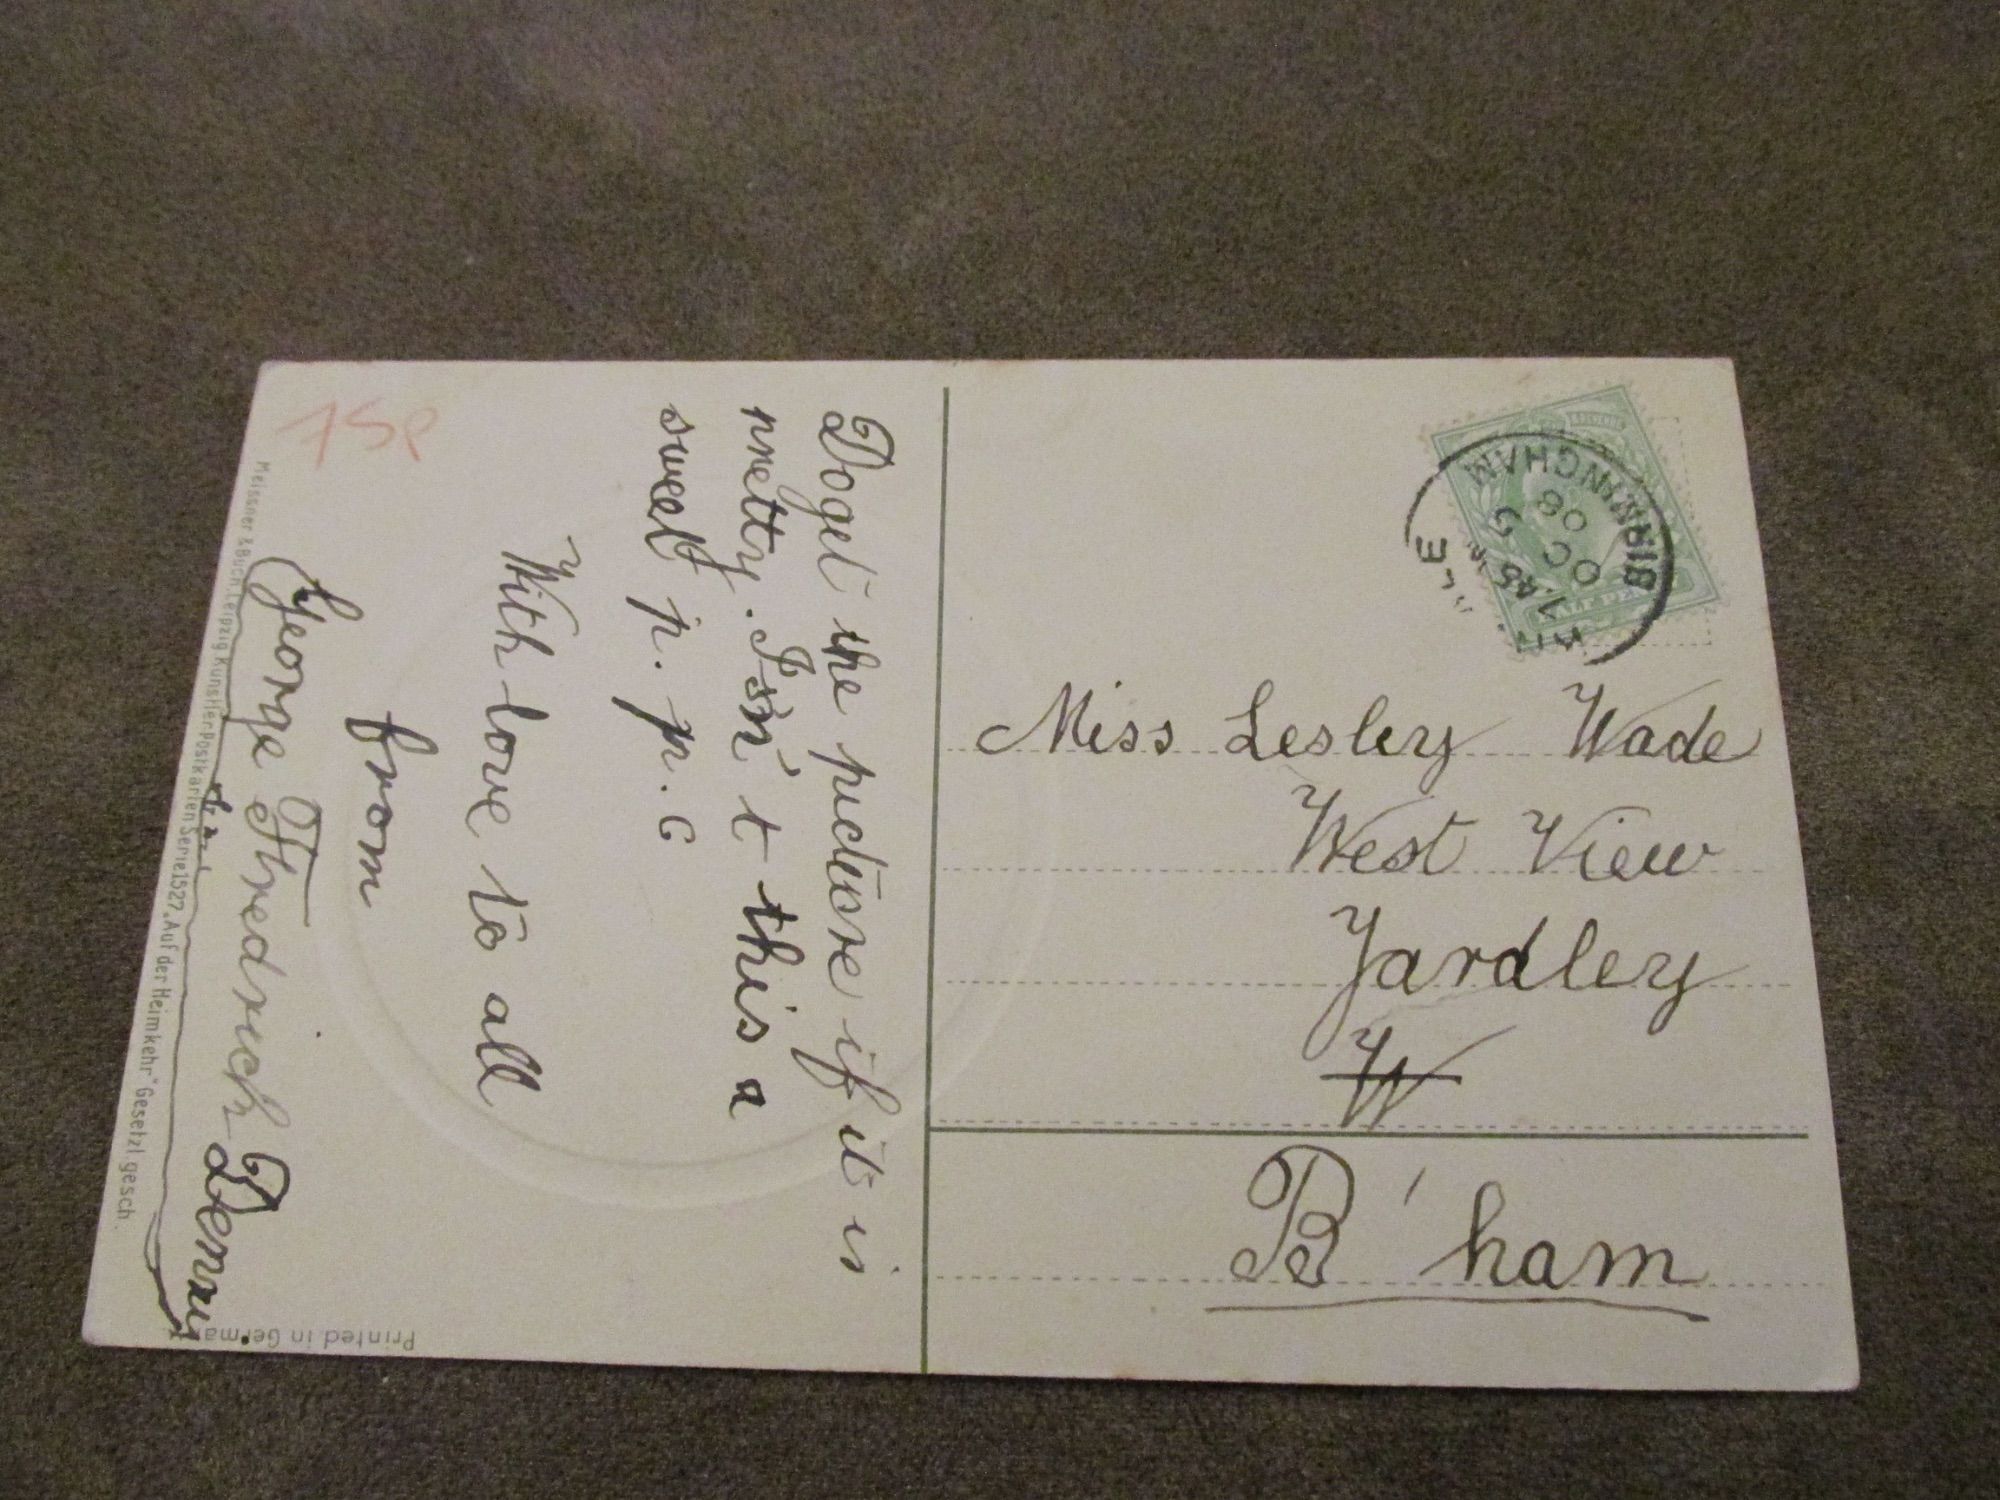 75p
Doget the picture if it is
pretty. Isn't this a
sweet p. p. c
With love to all
from
George Fredrich Denny
Meissner & Buch, Leipzig Künstler-Postkarten Serie 1527 „Auf der Heimkehr" Gesetzl. gesch.
Printed in German
BIRMINGHAM
1.45
OC 5
08
Miss Lesley Wade
West View
Yardley
W
B'ham